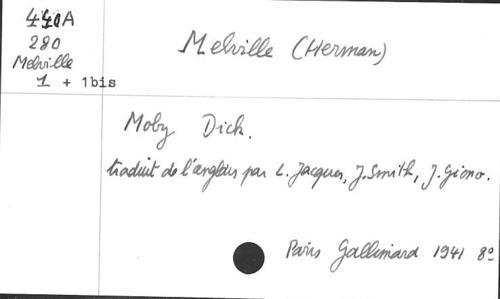 440A
280
Melville
1 + 1bis
Melville (Herman)
Moby Dick.
traduit de l'anglais par L. Jacques, J. Smith, J. Giono.
Paris Gallimard 1941 8º